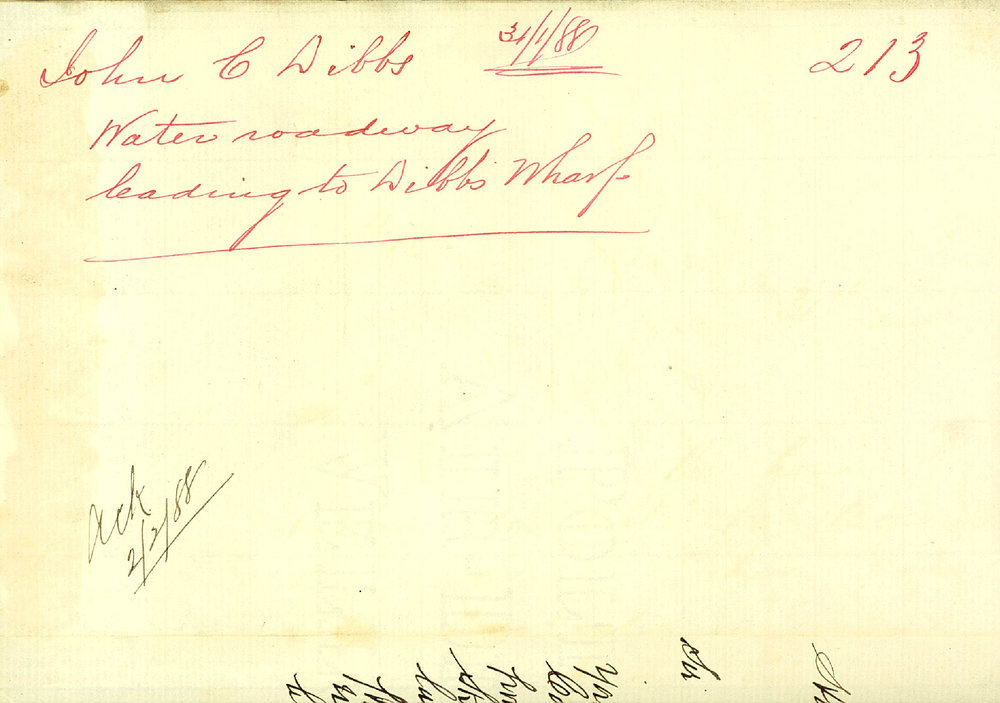 John C Dibbs 31/1/88 213
Water roadway
leading to Dibbs Wharf
Ack
2/2/88
Sir